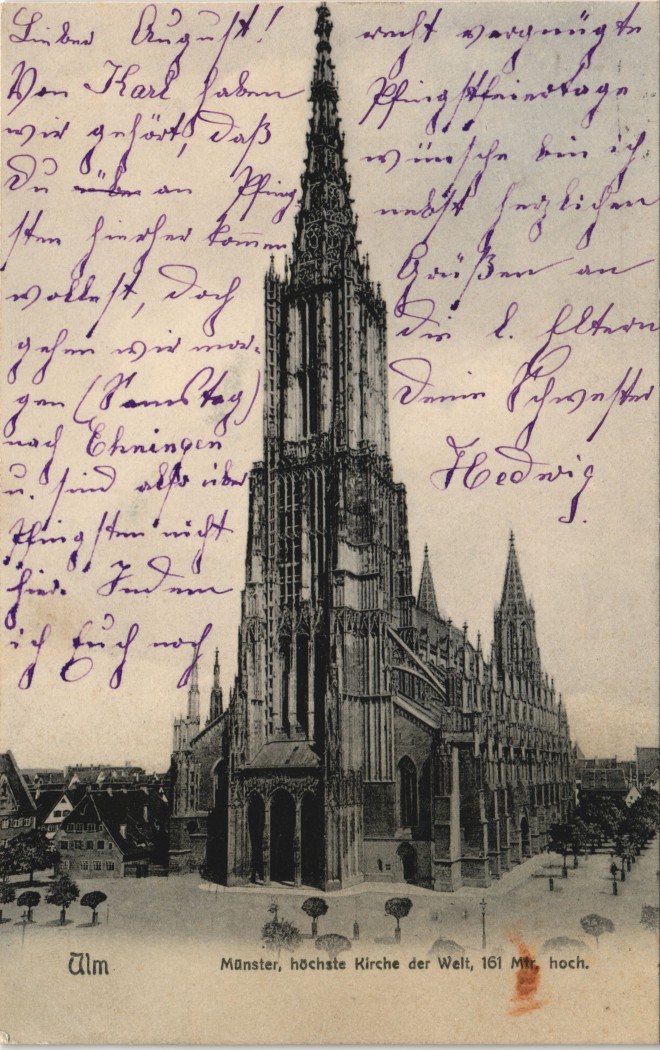 Lieber August!
Von Karl haben
wir gehört, daß
Du übe an Pfing
sten hierher kommen
wollest, doch
gehen wir mor-
gen (Samstag)
nach Ehningen
u. sind also über
Pfingsten nicht
hier. Indem
ich Euch noch
recht vergnügte
Pfingstfeiertage
wünsche bin ich
nebst herzlichen
Grüßen an
die l. Eltern
Deine Schwester
Hedwig
Ulm
Münster, höchste Kirche der Welt, 161 Mtr. hoch.